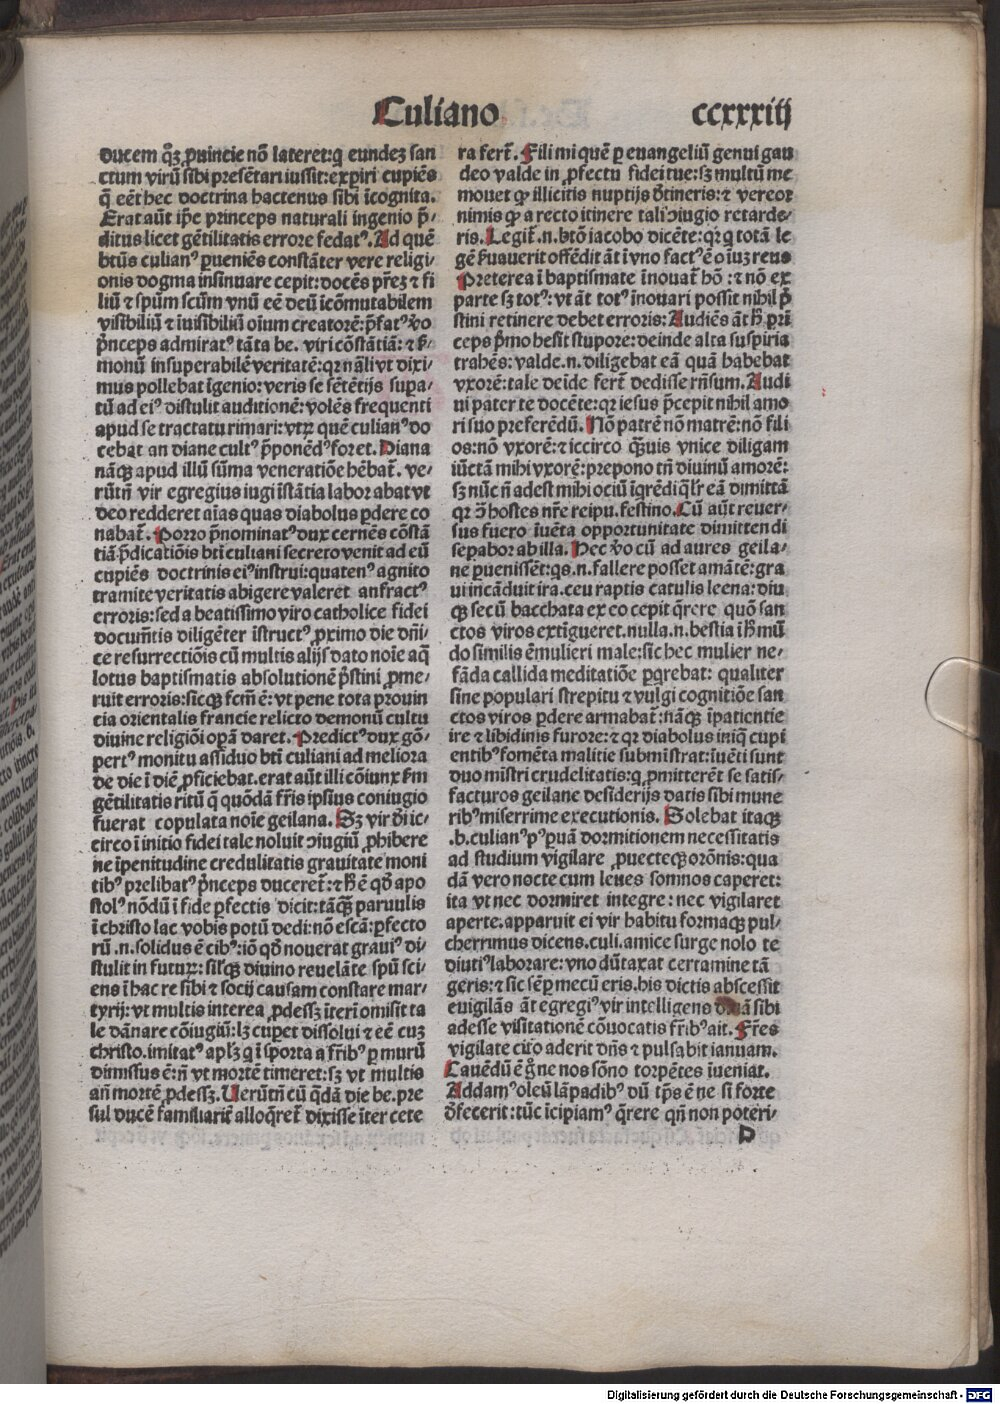 Culiano
ccxxxiij
ducem qꝫ ꝓuincie nō lateret:q eundeꝫ san
ctum virū sibi presētari iussit:experiri cupiēs
q̄ eēt hec doctrina hactenus sibi īcognita.
Erat aūt ip̄e princeps naturali ingenio p̄-
ditus licet gētilitatis errore fedatꝰ. Ad quē
btūs culianꝰ ꝑueniēs constāter vere religi-
onis dogma insinuare cepit:docēs pr̄eꝫ ⁊ fi
liū ⁊ spūm scūm vnū eē deū icōmutabilem
visibiliū ⁊ īuisibiliū oīum creatorē:p̄fatꝰ v̓o
p̄nceps admiratꝰ tāta be. viri cōstātiā: ⁊ ẜ-
monū insuperabilē veritatē:qr nāli vt dixi-
mus pollebat īgenio: veris se sētētijs supa-
tū ad eiꝰ distulit auditionē: volēs frequenti
apud se tractatu rimari:vtꝝ quē culianꝰ do
cebat an diane cultꝰ p̄ponēdꝰ foret. Diana
nāqꝫ apud illū sūma veneratiōe hēbat̄. ve-
rūtn̄ vir egregius iugi īstātia laborabat vt
deo redderet aīas quas diabolus ꝑdere co
nabat̄. Porro p̄nominatꝰ dux cernēs cōstā
tiā p̄dicatiōis bt̄i culiani secreto venit ad eū
cupiēs doctrinis eiꝰ instrui:quatenꝰ agnito
tramite veritatis abigere valeret anfractꝰ
erroris:sed a beatissimo viro catholice fidei
documētis diligēter īstructꝰ ꝓximo die dn̄i-
ce resurrectiōis cū multis alijs dato noīe aq̄
lotus baptismatis absolutionē p̄stini ꝓme-
ruit erroris:sicqꝫ fcm̄ ē: vt pene tota prouin
cia orientalis francie relicto demonū cultu
diuine religiōi operā daret. Predictꝰ dux gō-
pertꝰ monitu assiduo bt̄i culiani ad meliora
de die ī diē ꝓficiebat.erat aūt illi cōiunx ẜm
gētilitatis ritū q̄ quōdā fr̄is ipsius coniugio
fuerat copulata noīe geilana. Sꝫ vir dei ic-
circo ī initio fidei tale noluit ↄiugiū ꝓhibere
ne īpenitudine credulitatis grauitate moni
tibꝰ prelibatꝰ p̄nceps duceret̄:⁊ h̄ ē qd̄ apo
stolꝰ nōdū ī fide ꝑfectis dicit:tāqꝫ paruulis
ī christo lac vobis potū dedi:nō escā:ꝑfecto
rū .n.solidus ē cibꝰ:iō qd̄ nouerat grauiꝰ di-
stulit in futurꝝ: sil̓qꝫ diuino reuelāte spū sci-
ens ī hac re sibi ⁊ socij causam constare mar-
tyrij: vt multis interea ꝓdessꝫ īterī omisit ta
le dānare cōiugiū:lꝫ cuꝑet dissolui ⁊ eē cuꝫ
christo.imitatꝰ apl̓ꝫ q ī sporta a fr̄ibꝰ ꝑ murū
dimissus ē:n̄ vt mortē timeret:sꝫ vt multis
an̄ mortē ꝓdessꝫ. Uerūtn̄ cū q̄dā die be. pre
sul ducē familiariꝰ alloq̄ret̄ dixisse īter cete
ra fert̄. Fili mi quē ꝑ euangeliū genui gau
deo valde in ꝓfectu fidei tue:sꝫ multū me
mouet qꝓ illicitis nuptijs detineris:⁊ vereor
nimis qꝓ a recto itinere tali ↄiugio retarde-
ris. Legit̄.n.btō iacobo dicēte:qr q totā le
gē ẜuauerit offēdit āt ī vno factꝰ ē oīuꝫ reus
Preterea ī baptismate īnouat̄ hō : ⁊ nō ex
parte sꝫ totꝰ: vt āt totꝰ īnouari possit nihil p̄
stini retinere debet erroris: Audiēs āt h̄ prī
ceps p̄mo hesit stupore:deinde alta suspiria
trahēs: valde.n.diligebat eā quā habebat
vxorē:tale deīde fert̄ dedisse rn̄sum. Audi
ui pater te docēte:qr iesus p̄cepit nihil amo
ri suo preferēdū. Nō patrē nō matrē:nō fili
os:nō vxorē:⁊ iccirco q̄uis vnice diligam
iūctā mihi vxorē:prepono tn̄ diuinū amorē:
sꝫ nūc n̄ adest mihi ociū īqrēdi ql̓r eā dimittā
qr ↄ̄ hostes nr̄e reipu. festino. Cū aūt reuer-
sus fuero īuēta opportunitate dimittendi
sepabor ab illa. Hec v̓o cū ad aures geila-
ne ꝑuenissēt:qs.n.fallere posset amātē:gra
ui incāduit ira.ceu raptis catulis leena:diu
qꝫ secū bacchata ex eo cepit q̄rere quō san
ctos viros extīgueret.nulla.n.bestia ī h̄ mū
do similis ē mulieri male:sic hec mulier ne-
fāda callida meditatiōe pqrebat: qualiter
sine populari strepitu ⁊ vulgi cognitiōe san
ctos viros ꝑdere armabat̄:nāqꝫ īpatientie
ire ⁊ libidinis furore:⁊ qr diabolus iniq̄ cupi
entibꝰ fomēta malitie submīstrat:īuēti sunt
duo mīstri crudelitatis:q ꝓmitterēt se satis-
facturos geilane desiderijs datis sibi mune
ribꝰ miserrime executionis. Solebat itaqꝫ
.b.culianꝰ pꝰ ꝑuā dormitionem necessitatis
ad studium vigilare ꝓuecteqꝫ orōnis:qua
dā vero nocte cum leues somnos caperet:
ita vt nec dormiret integre: nec vigilaret
aperte.apparuit ei vir habitu formaqꝫ pul-
cherrimus dicens.culi.amice surge nolo te
diutiꝰ laborare: vno dūtaxat certamine tā
geris:⁊ sic sēꝑ mecū eris.his dictis abscessit
euigilās āt egregiꝰ vir intelligens sibi
adesse visitationē cōuocatis fr̄ibꝰ ait. Fr̄es
vigilate cito aderit dn̄s ⁊ pulsabit ianuam.
Cauēdū ē g̊ ne nos sōno torpētes īueniat.
Addamꝰ oleū lāpadibꝰ dū tp̄s ē ne si forte
defecerit:tūc īcipiamꝰ q̄rere qn̄ non poteri-
D
Digitalisierung gefördert durch die Deutsche Forschungsgemeinschaft - DFG